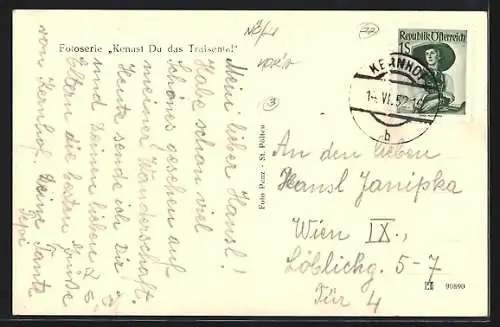 Fotoserie „Kennst Du das Traisental"
NÖ/
(3)
Mein lieber Hansl!
Habe schon viel
Schönes gesehen auf
meiner Wanderschaft.
Heute sende ich Dir
und Deinen lieben
Eltern die besten Grüße
von Kernhof. Deine Tante
Pepi
Foto Penz - St. Pölten
Republik Österreich
1S
KERNHOF
VI. 52
b
An den lieben
Hansl Janipka
Wien IX.,
Löblichg. 5-7
Tür 4
90890